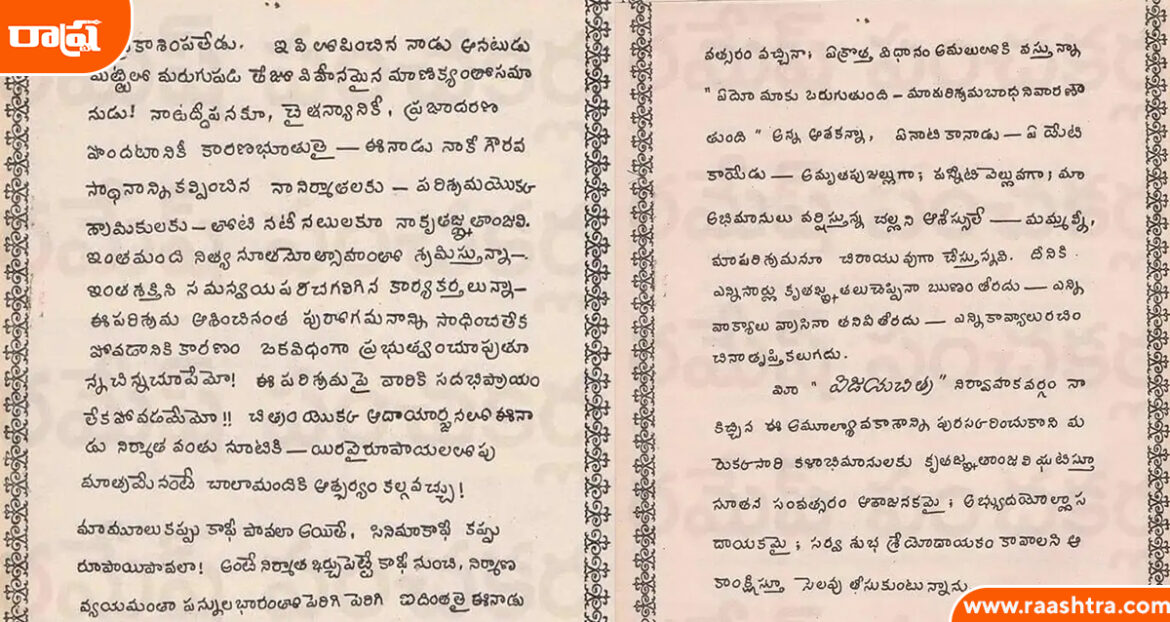 రాష్ట్ర
కాశింపలేడు. ఇవి లోపించిన నాడు ఆనటుడు
మట్టిలో మరుగుపడి తేజో విహీనమైన మాణిక్యంతోసమా
నుడు! నాఉద్దీపనకూ, చైతన్యానికీ, ప్రజాదరణ
పొందటానికీ కారణభూతులై — ఈనాడు నాకో గౌరవ
స్థానాన్ని కల్పించిన నా నిర్మాతలకు — పరిశ్రమయొక్క
శ్రామికులకు — తోటి నటీనటులకూ నా కృతజ్ఞతాంజలి.
ఇంతమంది నిత్య నూతనోత్సాహంతో శ్రమిస్తున్నా—
ఇంతశక్తిని సమన్వయపరిచగలిగిన కార్యకర్తలున్నా—
ఈపరిశ్రమ ఆశించినంత పురోగమనాన్ని సాధించలేక
పోవడానికి కారణం ఒకవిధంగా ప్రభుత్వంచూపుతూ
న్న చిన్నచూపేమో! ఈ పరిశ్రమపై వారికి సదభిప్రాయం
లేకపోవడమేమో!! చిత్రం యొక్క ఆదాయార్జనలో ఈనా
డు నిర్మాత వంతు నూటికి — యిరవైరూపాయలలోపు
మాత్రమేనంటే చాలామందికి ఆశ్చర్యం కల్గవచ్చు!
మామూలుకప్పు కాఫీ పావలా అయితే, సినిమాకాఫీ కప్పు
రూపాయిపావలా! అంటే నిర్మాత ఖర్చుపెట్టే కాఫీ నుంచి, నిర్మాణ
వ్యయమంతా పన్నులభారంతో పెరిగి పెరిగి ఐదింతలై ఈనాడు
వత్సరం వచ్చినా; ఏక్రొత్త విధానం అమలులోకి వస్తున్నా
" ఏదో మాకు ఒరుగుతుంది — మాపరిశ్రమబాధనివారణౌ
తుంది " అన్న ఆశకన్నా, ఏనాటి కానాడు — ఏ యేటి
కాయేడు — అమృతపుజల్లుగా; పన్నీటి వెల్లువగా; మా
అభిమానులు వర్షిస్తున్న చల్లని ఆశీస్సులే — మమ్మల్నీ,
మాపరిశ్రమనూ చిరాయువుగా చేస్తున్నవి. దీనికి
ఎన్నిసార్లు కృతజ్ఞతలుచెప్పినా ఋణంతీరదు — ఎన్ని
వాక్యాలు వ్రాసినా తనివితీరదు — ఎన్నికావ్యాలురచిం
చినాతృప్తికలుగదు.
మీ " విజయచిత్ర " నిర్వాహకవర్గం నా
కిచ్చిన ఈ అమూల్యావకాశాన్ని పురస్కరించుకొని మ
రొకసారి కళాభిమానులకు కృతజ్ఞతాంజలి ఘటిస్తూ
నూతన సంవత్సరం ఆశాజనకమై; అభ్యుదయోల్లాస
దాయకమై; సర్వ శుభ శ్రేయోదాయకం కావాలని ఆ
కాంక్షిస్తూ సెలవు తీసుకుంటున్నాను
www.raashtra.com